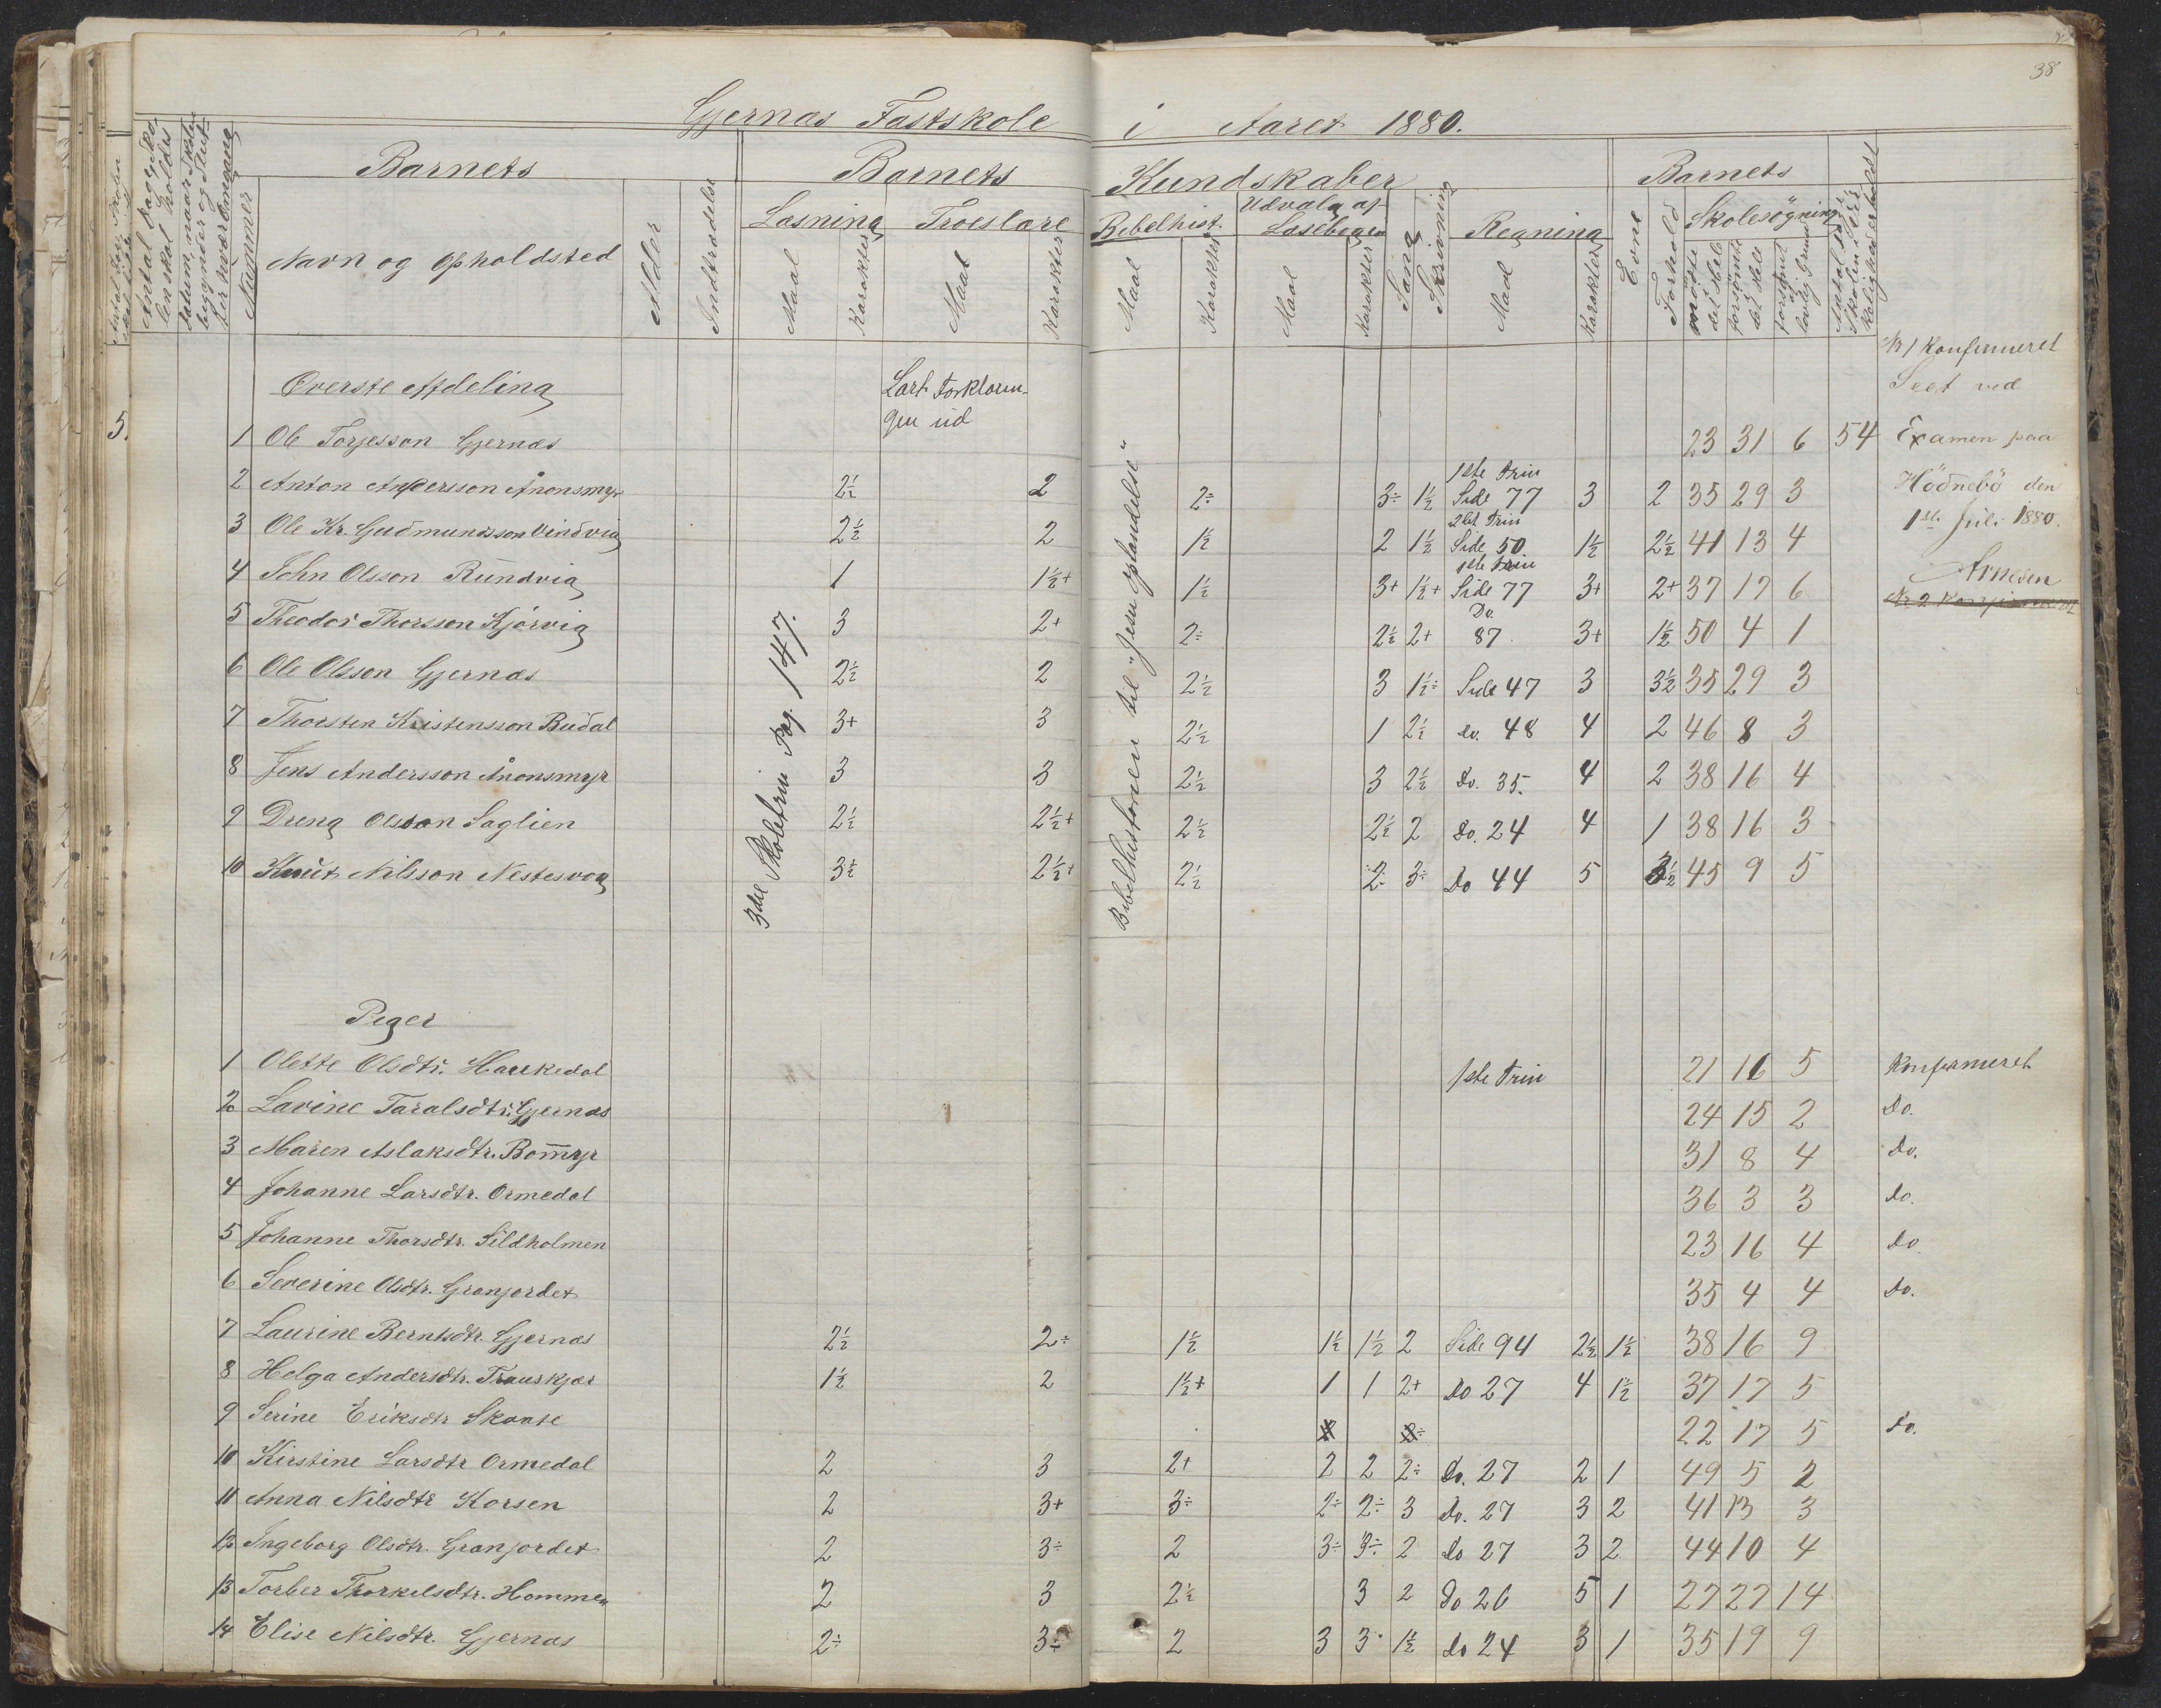 38
Gjernæs Fastskole i Aaret 1880.
Antal Dage Skolen skal holdes
Datum, naar Skolen begynder og slutter hver Omgang
Nummer
Barnets
Navn og Opholdsted
Alder
Indtrædelse
Barnets Kundskaber
Læsning
Maal
Karakter
Troeslære
Maal
Karakter
Bibelhist.
Maal
Karakter
Udvalg af Læsebogen
Maal
Karakter
Sang
Skrivning
Regning
Maal
Karakter
Barnets
Evne
Forhold
Skolesøgning
mødte det Hele
forsømte det Hele
forsømt af lovlig Grund
Øverste Afdeling
Lært Forklarin-
gen ud
3die Skoletrin Pag. 147.
Bibelhistorien til "Jesu Opstandelse"
5.
1 Ole Torjesson Gjernæs 23 31 6 54
2 Anton Andersson Ånonsmyr 2½ 2 2÷ 3÷ 1½ 1ste Trin Side 77 3 2 35 29 3
3 Ole Kr. Gudmundsson Vindvig 2½ 2 1½ 2 1½ 2det Trin Side 50 1½ 2½ 41 13 4
4 John Olsson Rundvig 1 1½+ 1½ 3+ 1½+ 1ste Trin Side 77 3+ 2+ 37 17 6
5 Theodor Thorsson Kjørvig 3 2+ 2÷ 2½ 2+ Do. 87. 3+ 1½ 50 4 1
6 Ole Olsson Gjernæs 2½ 2 2½ 3 1½÷ Side 47 3 3½ 35 29 3
7 Thorsten Kristensson Budal 3+ 3 2½ 1 2½ do. 48 4 2 46 8 3
8 Jens Andersson Ånonsmyr 3 3 2½ 3 2½ Do. 35. 4 2 38 16 4
9 Dreng Olsson Saglien 2½ 2½+ 2½ 2½ 2 Do. 24 4 1 38 16 3
10 Knut Nilsson Nestesvag 3½ 2½+ 2½ 2 3÷ Do 44 5 3½ 45 9 5
Nr 1 Konfirmeret
Seet ved
Examen paa
Hødnebø den
1ste Juli 1880.
Arnesen
Nr 2 Konfirmeret
Piger
1 Olette Olsdtr. Haukedal 1ste Trin 21 16 5 Konfirmeret
2 Lavine Taralsdtr. Gjernæs 24 15 2 Do.
3 Maren Aslaksdtr. Bommyr 31 8 4 Do.
4 Johanne Larsdtr. Ormedal 36 3 3 do.
5 Johanne Thorsdtr. Sildholmen 23 16 4 do
6 Severine Olsdtr. Granjordet 35 4 4 Do.
7 Laurine Berntsdtr. Gjernæs 2½ 2÷ 1½ 1½ 1½ 2 Side 94 2½ 1½ 38 16 9
8 Helga Andersdtr. Trauskjær 1½ 2 1½+ 1 1 2+ Do 27 4 1½ 37 17 5
9 Serine Eriksdtr Skarte 22 17 5 do.
10 Kirstine Larsdtr Ormedal 2 3 2+ 2 2 2÷ Do. 27 2 1 49 5 2
11 Anna Nilsdtr Korsen 2 3+ 3÷ 2÷ 2÷ 3 Do. 27 3 2 41 13 3
12 Ingeborg Olsdtr. Granjordet 2 3÷ 2 3÷ 3÷ 2 do 27 3 2 44 10 4
13 Torber Thorkelsdtr. Hommen 2 3 2½ 3 2 Do 26 5 1 27 27 14
14 Elise Nilsdtr. Gjernæs 2÷ 3÷ 2 3 3 1½ do 24 3 1 35 19 9